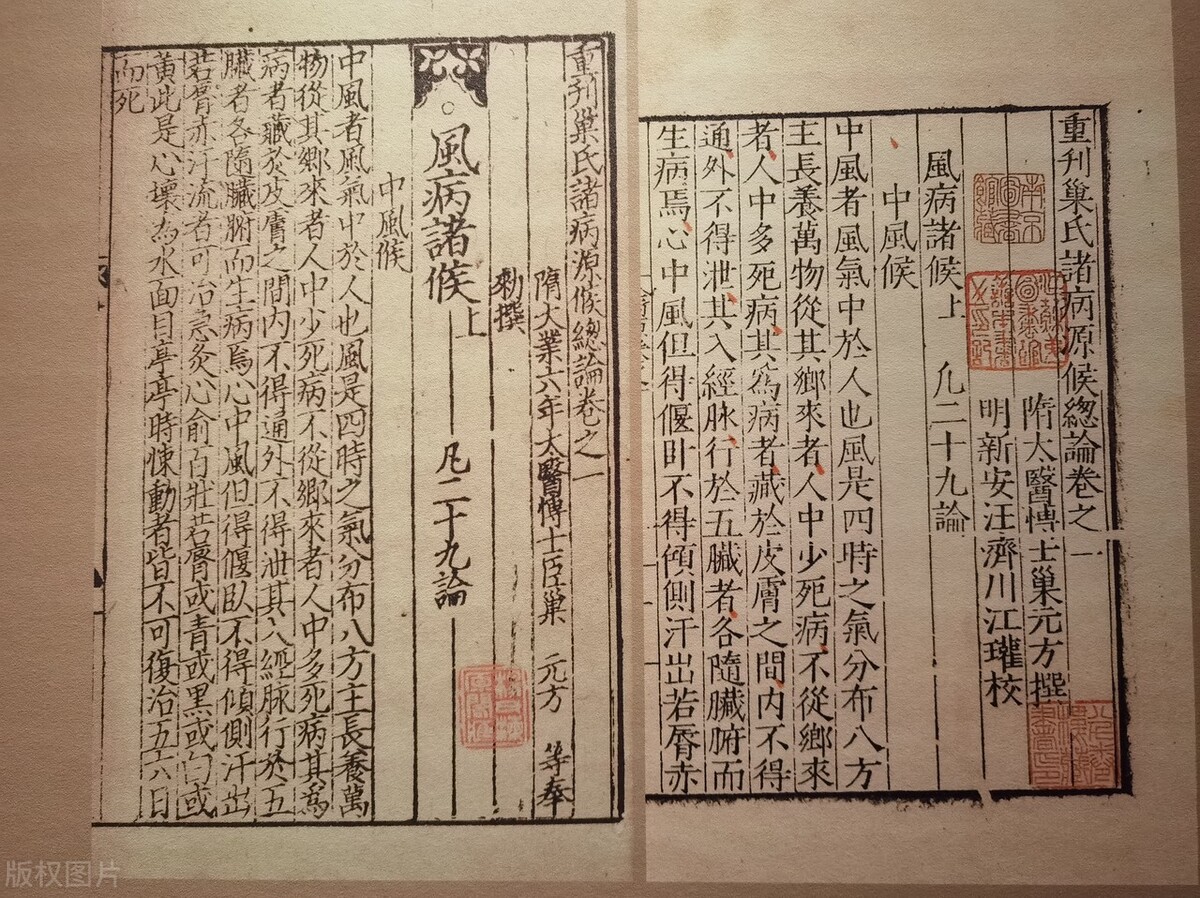 重刊巢氏諸病源候總論卷之一
隋太醫博士巢元方撰
明新安汪濟川江瓘校
風病諸候上 凢二十九論
中風候
中風者風氣中於人也風是四時之氣分布八方
主長養萬物從其鄉來者人中少死病不從鄉來
者人中多死病其爲病者藏於皮膚之間内不得
通外不得泄其入經脉行於五臟者各隨臟腑而
生病焉心中風但得偃卧不得傾側汗出若脣赤
重刊巢氏諸病源候總論卷之一
隋大業六年太醫博士臣巢 元方 等奉
勑撰
風病諸候上 凡二十九論
中風候
中風者風氣中於人也風是四時之氣分布八方主長養萬
物從其鄉來者人中少死病不從鄉來者人中多死病其爲
病者藏於皮膚之間内不得通外不得泄其入經脉行於五
臟者各隨臟腑而生病焉心中風但得偃臥不得傾側汗出
若脣赤汗流者可治急灸心俞百壯若脣或青或黑或白或
黃此是心壞為水面目亭亭時悚動者皆不可復治五六日
而死
版权图片